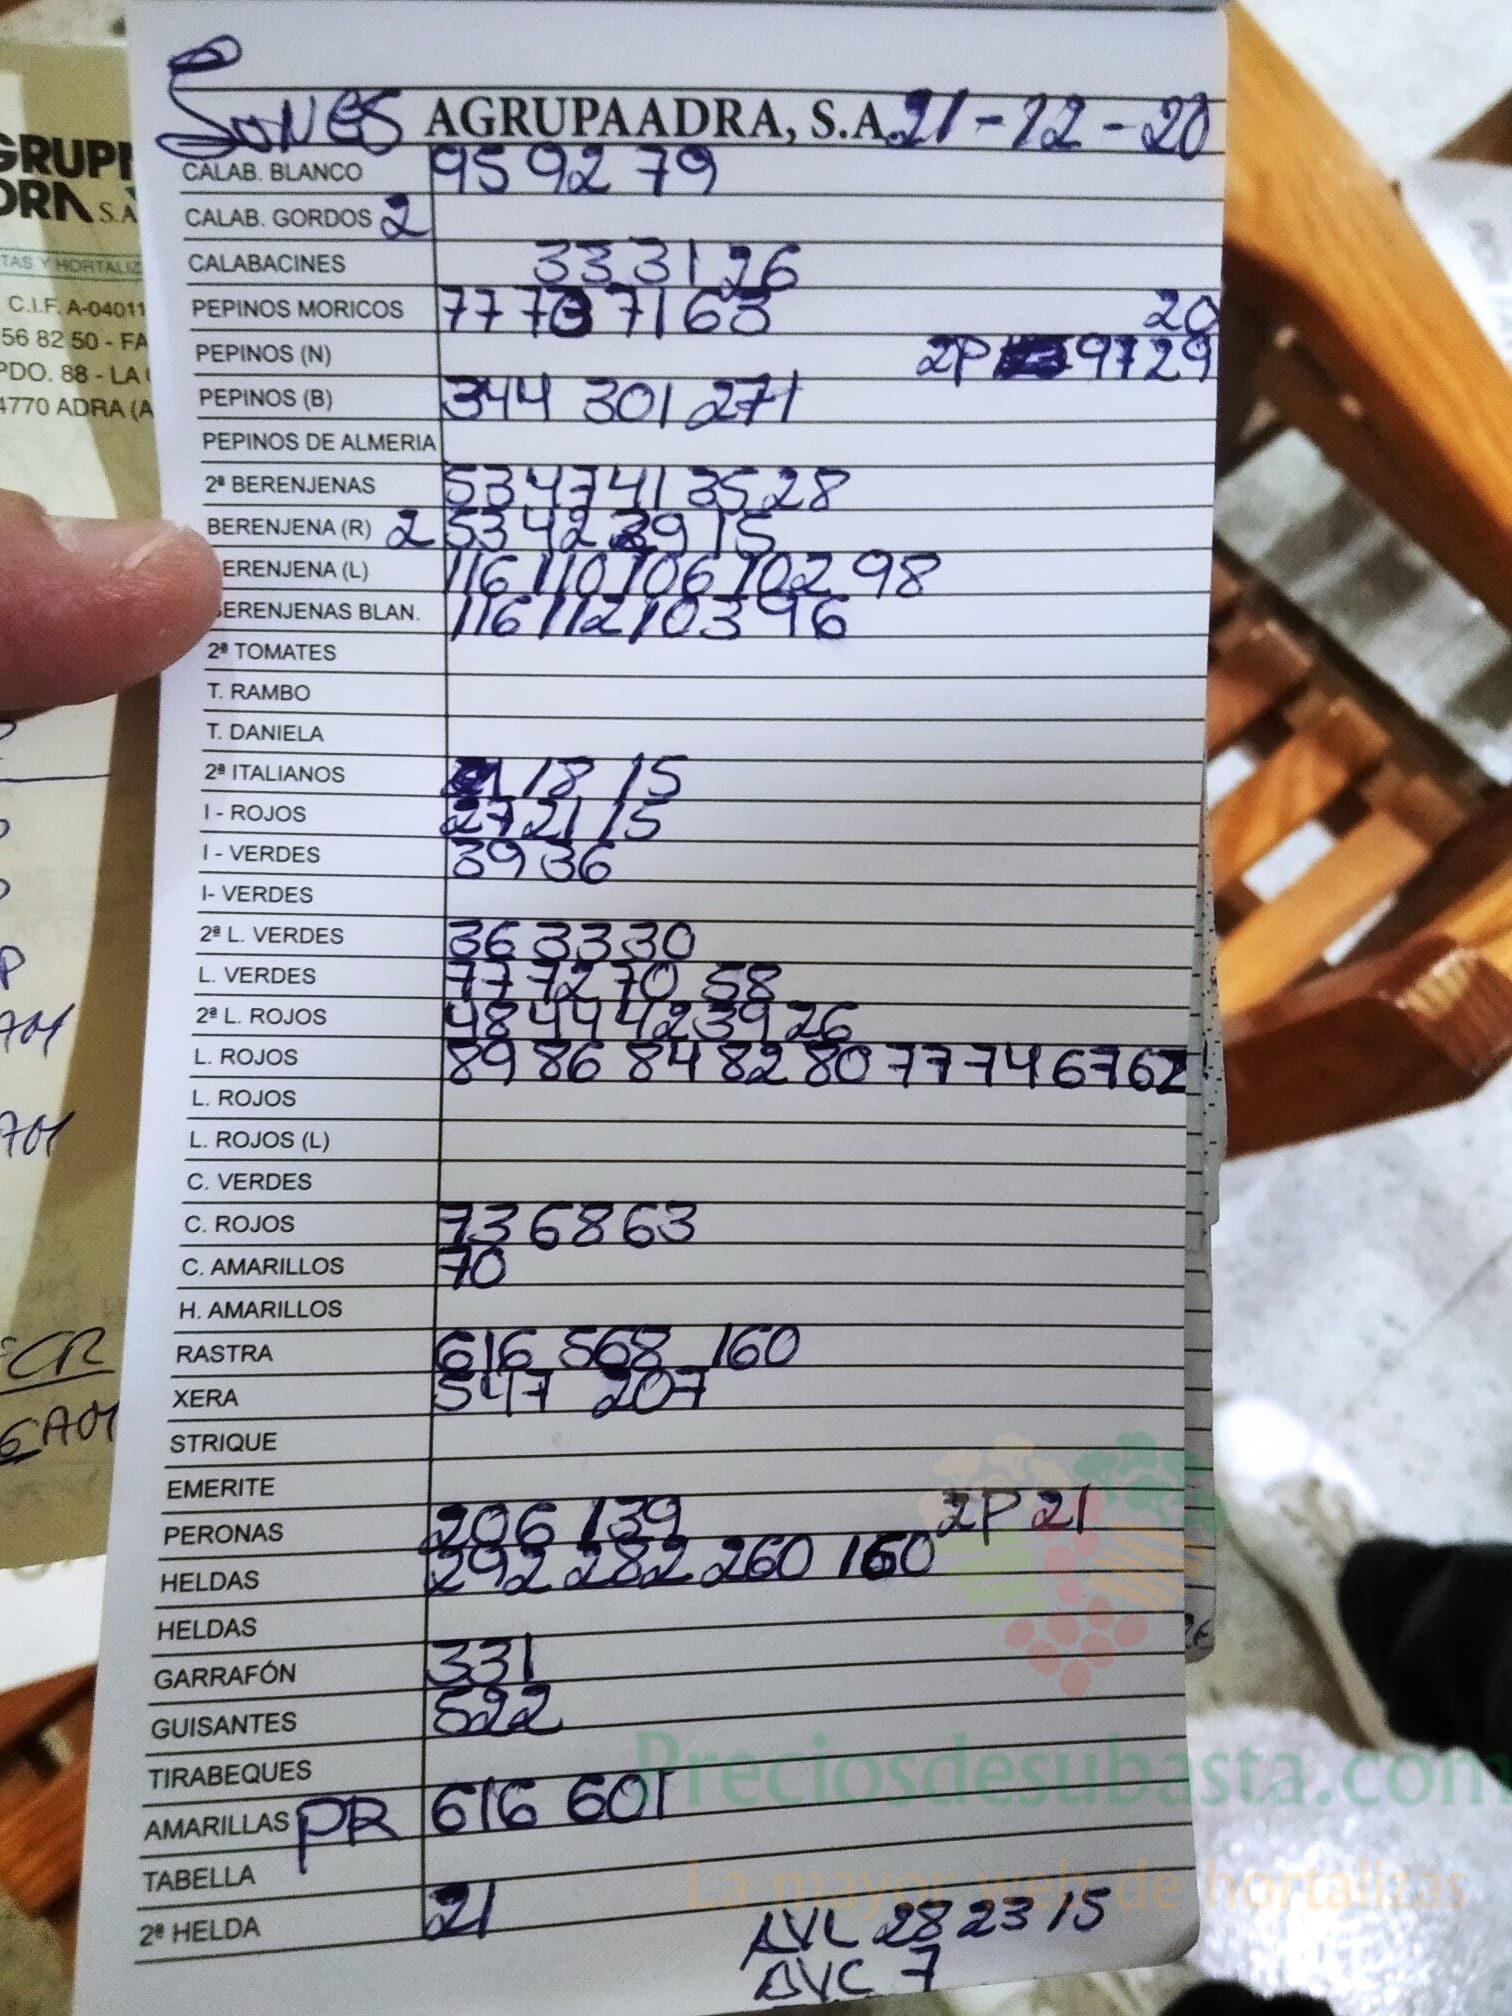 LUNES AGRUPAADRA, S.A. 21-12-20
CALAB. BLANCO 95 92 79
CALAB. GORDOS 2
CALABACINES 33 31 26
PEPINOS MORICOS 77 73 71 63 20
PEPINOS (N) 2P 97 29
PEPINOS (B) 344 301 271
PEPINOS DE ALMERIA
2ª BERENJENAS 53 47 41 35 28
BERENJENA (R) 2 53 42 39 15
ERENJENA (L) 116 110 106 102 98
BERENJENAS BLAN. 116 112 103 96
2ª TOMATES
T. RAMBO
T. DANIELA
2ª ITALIANOS 18 15
I - ROJOS 27 21 15
I - VERDES 39 36
I- VERDES
2ª L. VERDES 36 33 30
L. VERDES 77 72 70 58
2ª L. ROJOS 48 44 42 39 26
L. ROJOS 89 86 84 82 80 77 74 67 62
L. ROJOS
L. ROJOS (L)
C. VERDES
C. ROJOS 73 68 63
C. AMARILLOS 70
H. AMARILLOS
RASTRA 616 568 160
XERA 547 207
STRIQUE
EMERITE
PERONAS 206 139 2P 21
HELDAS 292 282 260 160
HELDAS
GARRAFÓN 331
GUISANTES 522
TIRABEQUES
AMARILLAS PR 616 601
TABELLA
2ª HELDA 21
AVL 28 23 15
AVC 7
GRUP
ADRA S.A
TAS Y HORTALIZ
C.I.F. A-04011
56 82 50 - FA
PDO. 88 - LA
4770 ADRA (A
Preciosdesubasta.com
La mayor web de hortalizas